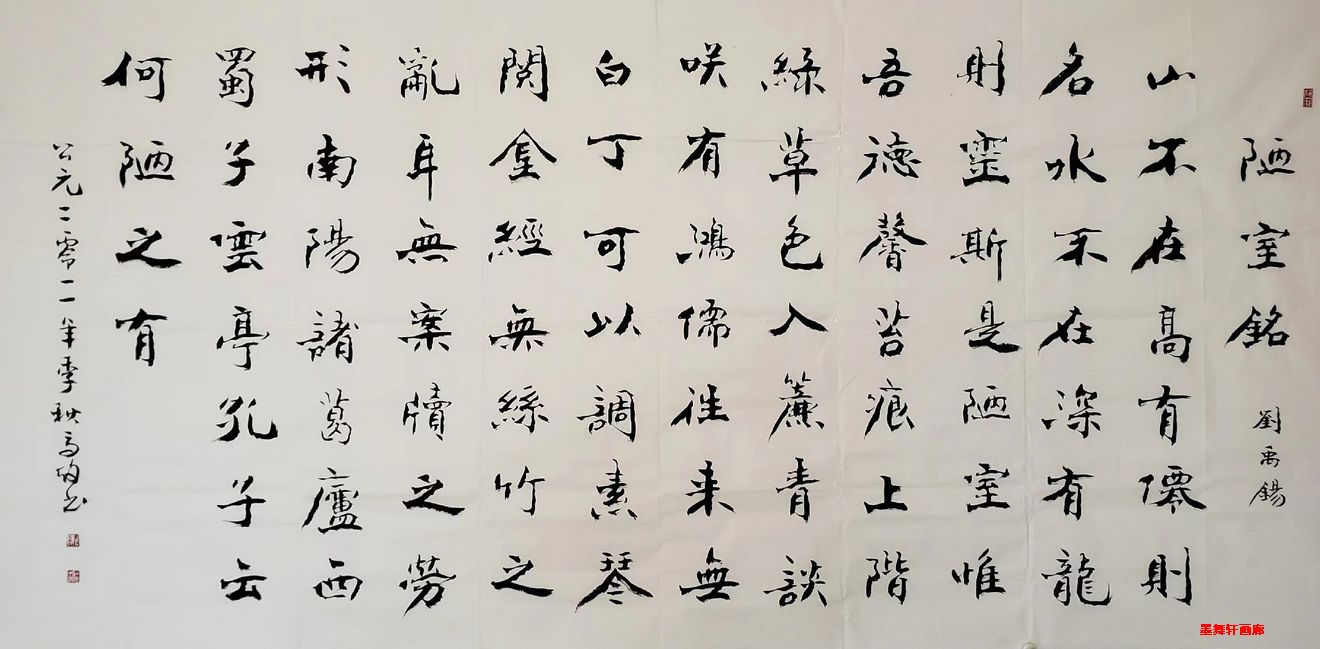 陋室銘
劉禹錫
山不在高有僊則
名水不在深有龍
則靈斯是陋室惟
吾德馨苔痕上階
綠草色入簾青談
咲有鴻儒往来無
白丁可以調素琴
閱金經無絲竹之
亂耳無案牘之勞
形南陽諸葛廬西
蜀子雲亭孔子云
何陋之有
公元二零一一年季秋高书
墨舞轩画廊